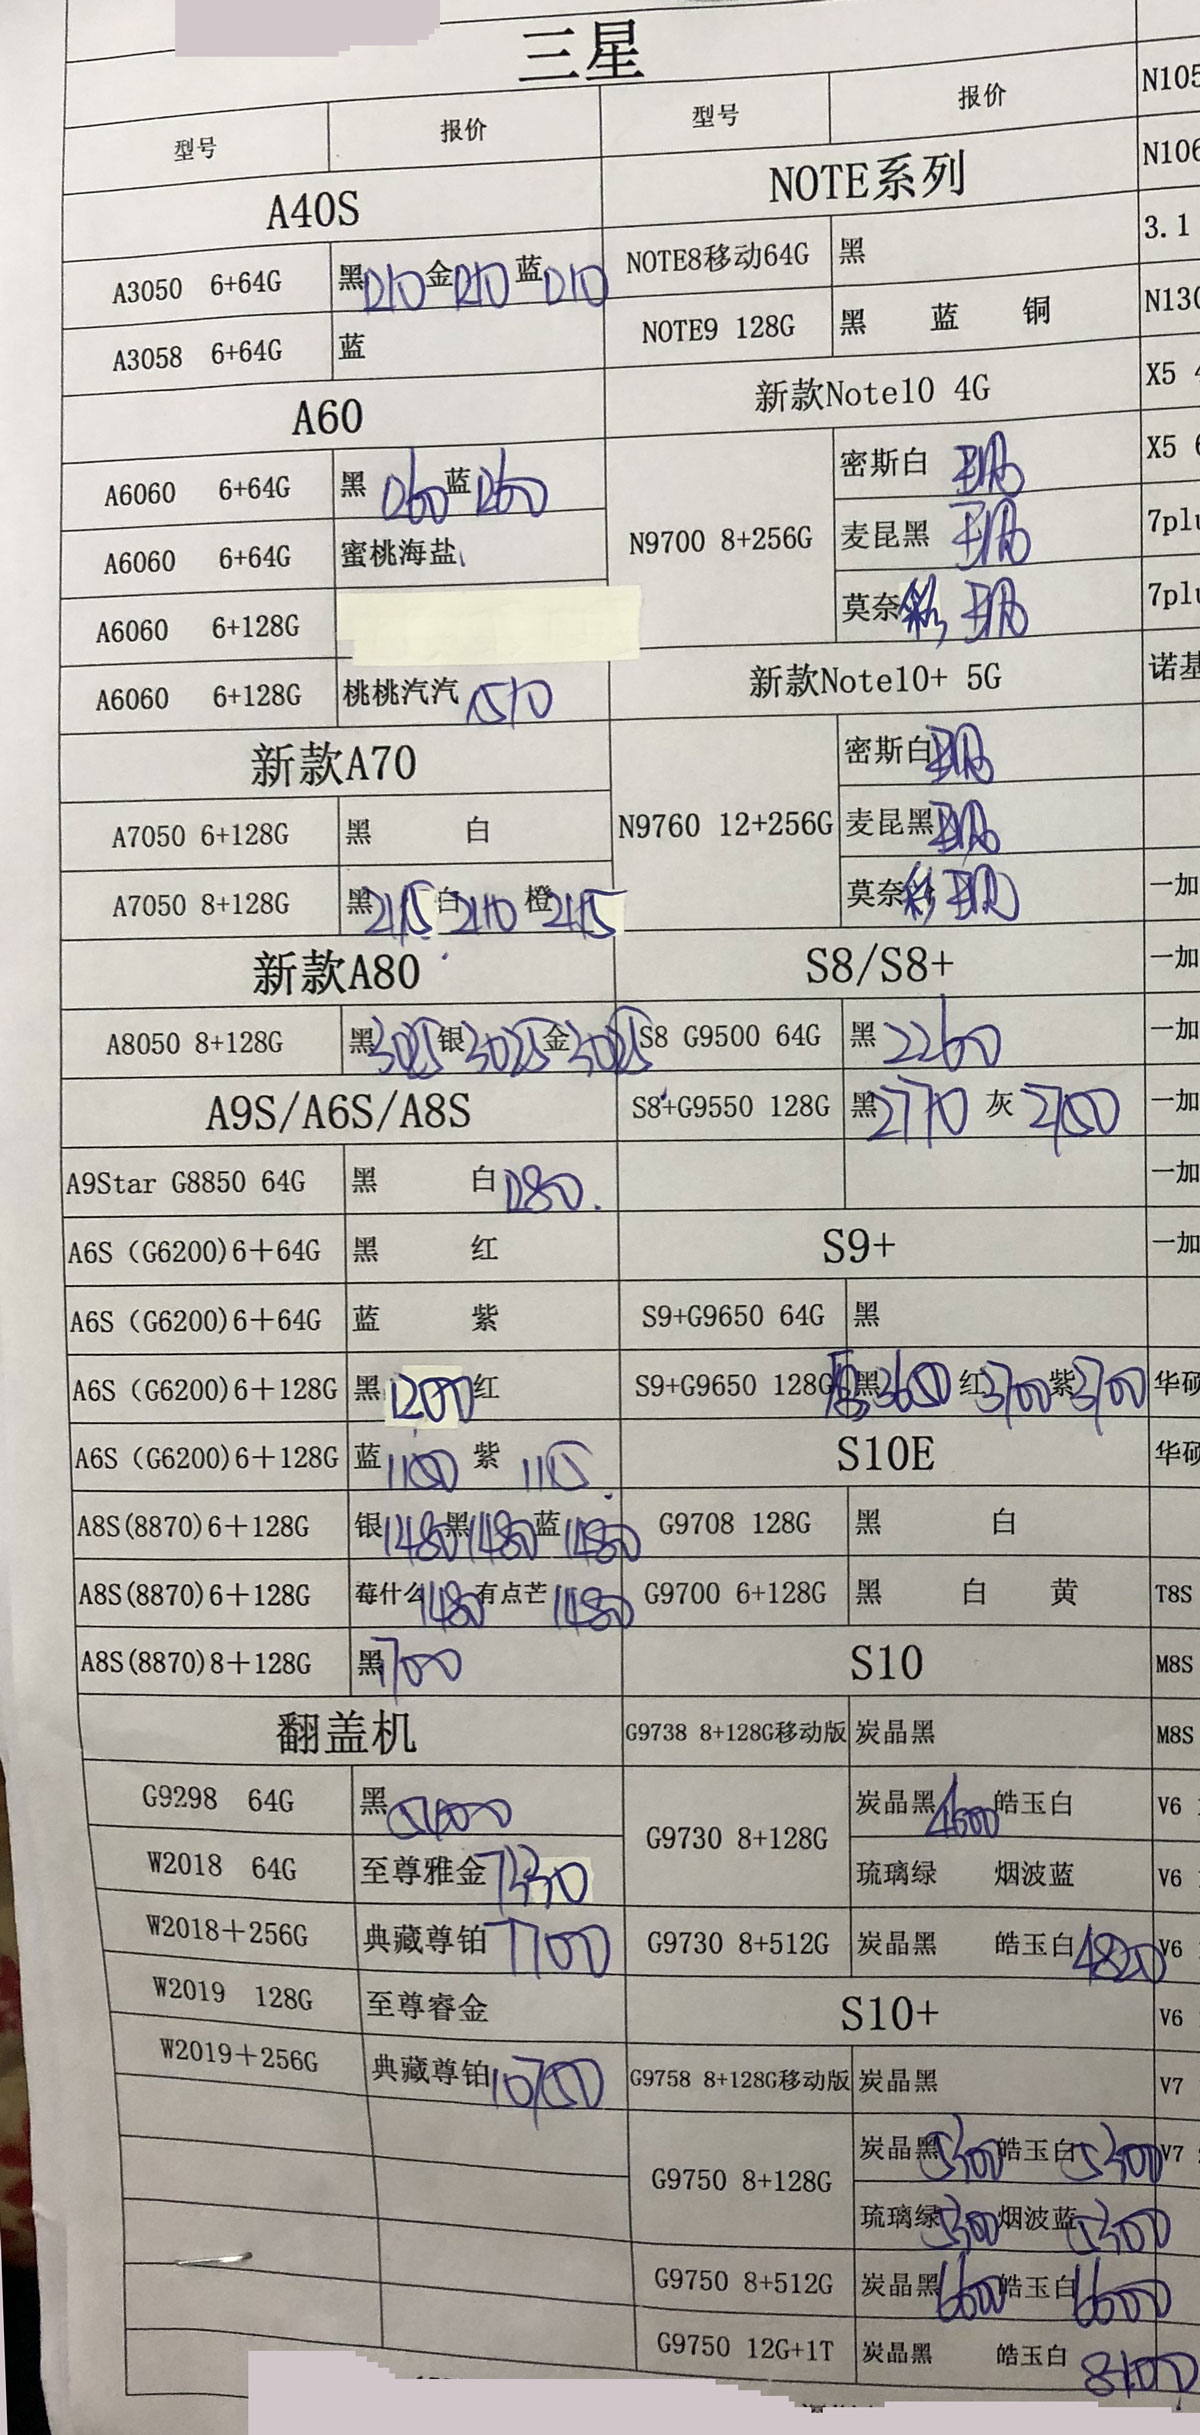 三星
型号 报价 型号 报价
N105
A40S NOTE系列
N106
A3050 6+64G 黑1210 金1210 蓝1210 NOTE8移动64G 黑
3.1
A3058 6+64G 蓝 NOTE9 128G 黑 蓝 铜
N130
A60 新款Note10 4G
X5 4
A6060 6+64G 黑1260 蓝1260 N9700 8+256G 密斯白
X5 6
A6060 6+64G 蜜桃海盐 麦昆黑
7plu
A6060 6+128G 莫奈彩
7plu
A6060 6+128G 桃桃汽汽1510 新款Note10+ 5G
诺基
新款A70 N9760 12+256G 密斯白
A7050 6+128G 黑 白 麦昆黑
A7050 8+128G 黑2115 白2110 橙2115 莫奈彩
一加
新款A80 S8/S8+
一加
A8050 8+128G 黑3025 银3025 金3025 S8 G9500 64G 黑2260
一加
A9S/A6S/A8S S8+G9550 128G 黑2770 灰2700
一加
A9Star G8850 64G 黑 白1280.
一加
A6S（G6200)6＋64G 黑 红 S9+
一加
A6S（G6200)6＋64G 蓝 紫 S9+G9650 64G 黑
A6S（G6200)6＋128G 黑1200 红 S9+G9650 128G 黑3650 红3700 紫3700
华硕
A6S（G6200)6＋128G 蓝1100 紫1115 S10E
华硕
A8S(8870)6＋128G 银1480 黑1480 蓝1480 G9708 128G 黑 白
A8S(8870)6＋128G 莓什么1480 有点芒1480 G9700 6+128G 黑 白 黄
T8S
A8S(8870)8＋128G 黑1700 S10
M8S
翻盖机 G9738 8+128G移动版 炭晶黑
M8S
G9298 64G 黑 G9730 8+128G 炭晶黑4600 皓玉白
V6
W2018 64G 至尊雅金7330 琉璃绿 烟波蓝
V6
W2018＋256G 典藏尊铂7700 G9730 8+512G 炭晶黑 皓玉白4820
V6
W2019 128G 至尊睿金 S10+
V6
W2019＋256G 典藏尊铂10700 G9758 8+128G移动版 炭晶黑
V7
G9750 8+128G 炭晶黑5300 皓玉白5300
V7
琉璃绿5300 烟波蓝5300
G9750 8+512G 炭晶黑6600 皓玉白6600
G9750 12G+1T 炭晶黑 皓玉白8100